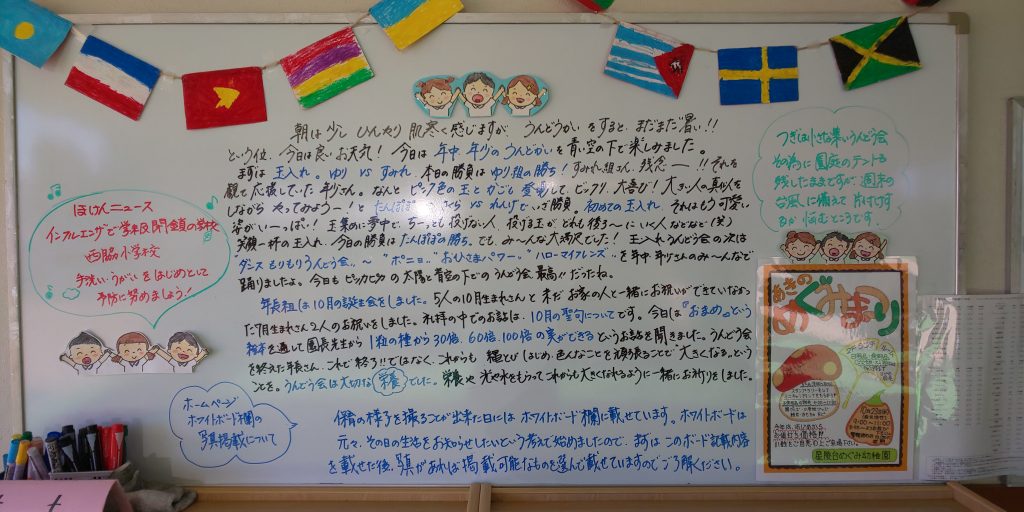 朝は少し ひんやり 肌寒く感じますが、うんどうかい をすると、まだまだ暑い!!
という位、今日は良いお天気! 今日は 年中・年少のうんどうかいを青い空の下で楽しみました。
まずは 玉入れ。ゆり vs すみれ、本日の勝負は ゆり組の勝ち! すみれ組さん、残念ー!! それを
観て応援していた 年少さん。なんと ピンク色の玉とかごも 登場して、ビックリ、大喜び! 大きい人の真似を
しながら やってみようー!と たんぽぽ さくら vs れんげ でいざ勝負。初めての玉入れ、それはもう可愛い
姿がいーっぱい! 玉集めに夢中で、ちーっとも 投げない人、投げる玉が どれも後ろへ に いく人などなど(笑)
笑顔一杯の玉入れ、今日の勝負は たんぽぽの勝ち。でも、みーんな大満足でした! 玉入れうんどう会 の次は
"ダンス もりもりうんどう会" 〜 "ポニョ" "おひさまパワー" "ハローマイフレンズ" を年中・年少さんのみーんなで
踊りましたよ。今日も ピッカピカの太陽と青空の下での うんどう会、最高!! だったね。
年長組は10月の誕生会をしました。5人の10月生まれさんと まだ お家の人と一緒にお祝いができていなかっ
た7月生まれさん 2人のお祝いをしました。礼拝の中でのお話は、10月の聖句についてです。今日は『おまめ』という
絵本を通して園長先生から 1粒の種から 30倍、60倍、100倍の実ができる というお話を聞きました。うんどう会
を終えた年長さん、これで 終了!! ではなく、これからも 縄とび はじめ、色んなことを頑張ることで "大きくなる" という
ことを。うんどう会は大切な 栄養 でした。栄養や 光や水をもらって これからも大きくなれるように一緒にお祈りをしました。
ほけんニュース
インフルエンザで学級閉鎖の学校
西脇小学校
手洗い・うがい をはじめとして
予防に努めましょう!
つぎは小さな集いうんどう会
その為に 園庭のテントを
残したままですが、週末の
台風に備えて 片付けす
るか 悩むところです。
ホームページ
ホワイトボード欄の
写真掲載について
保育の様子を撮ることが出来た日には ホワイトボード欄に載せています。ホワイトボードは
元々、その日の生活をお知らせしたいという考えで始めましたので、まずは このボード記載内容
を載せた後、写真があれば掲載可能なものを選んで載せていますのでご了解ください。
あきの
めぐみまつり
星陵台めぐみ幼稚園